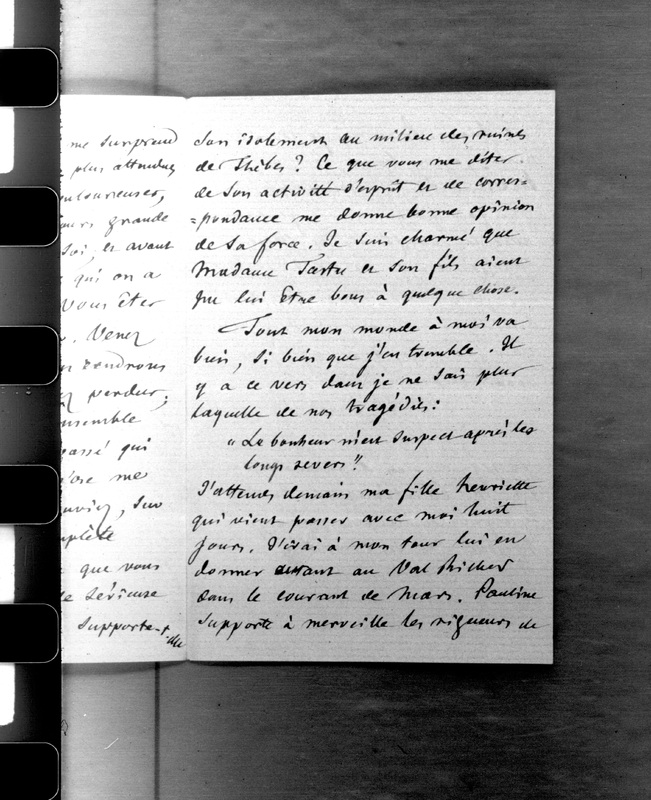 me surprend
plus attendue,
douloureuses,
jours grande
soi, et avant
qui on a
vous êtes
Venez
rendrons
perdue,
ensemble
passé qui
j'ose me
sur
complète
que vous
sérieuse
supporte-t-
elle
son isolement au milieu des ruines
de Thèbes ? Ce que vous me dites
de son activité d'esprit et de corres=
=pondance me donne bonne opinion
de sa force. Je suis charmé que
Madame Tastu et son fils aient
pu lui être bons à quelque chose.
Tout mon monde à moi va
bien, si bien que j'en tremble. Il
y a ce vers dans je ne sais plus
laquelle de nos tragédies :
" Le bonheur m'est suspect après les
longs revers "
J'attends demain ma fille henriette
qui vient passer avec moi huit
jours. J'irai à mon tour lui en
donner autant au Val Richer
dans le courant de Mars. Pauline
supporte à merveille les rigueurs de